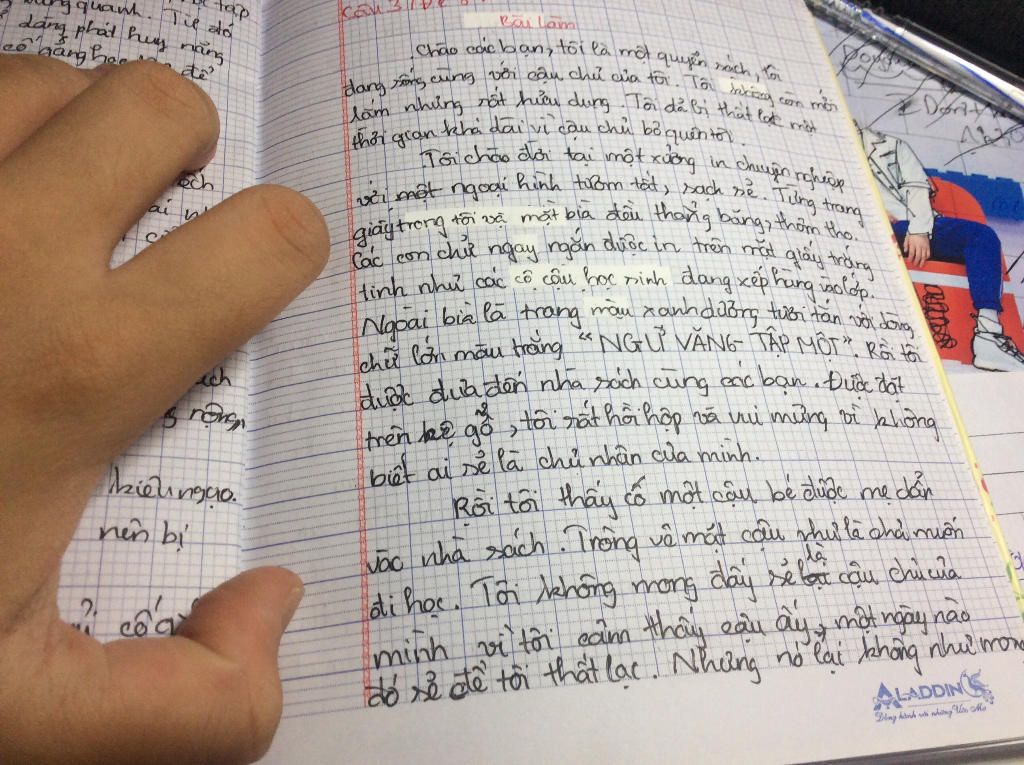 câu 3 / Đề
Bài làm
Chào các bạn, tôi là một quyển sách, tôi
đang sống cùng với cậu chủ của tôi. Tôi không còn mới
lắm nhưng rất hữu dụng. Tôi đã bị thất lạc một
thời gian khá dài vì cậu chủ bỏ quên tôi.
Tôi chào đời tại một xưởng in chuyên nghiệp
với một ngoại hình tươm tất, sạch sẽ. Từng trang
giấy trong tôi và mặt bìa đều thẳng băng, thơm tho.
Các con chữ ngay ngắn được in trên mặt giấy trắng
tinh như các cô cậu học sinh đang xếp hàng vào lớp.
Ngoài bìa là trang màu xanh dương tươi tắn với dòng
chữ lớn màu trắng "NGỮ VĂNG TẬP MỘT". Rồi tôi
được đưa đến nhà sách cùng các bạn. Được đặt
trên kệ gỗ, tôi rất hồi hộp và vui mừng vì không
biết ai sẽ là chủ nhân của mình.
Rồi tôi thấy có một cậu bé được mẹ dẫn
vào nhà sách. Trông vẻ mặt cậu như là chả muốn
đi học. Tôi không mong đấy sẽ là cậu chủ của
mình vì tôi cảm thấy cậu ấy, một ngày nào
đó sẽ để tôi thất lạc. Nhưng nó lại không như mong
quanh. Từ đó
đáng phát huy năng
cố gắng học để
kiêu ngạo.
nên bị
ALADDIN
Đồng hành với những Ước Mơ